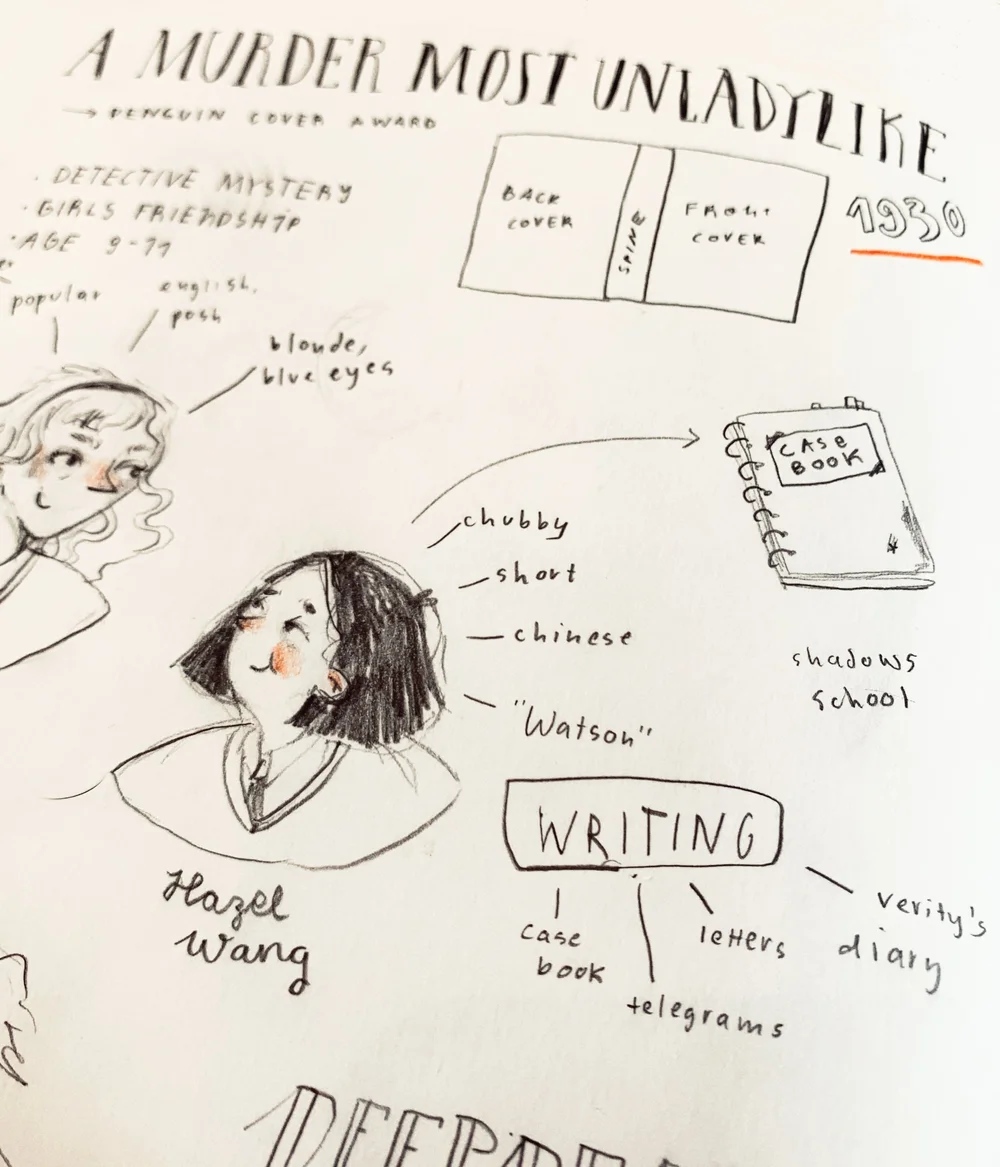 A MURDER MOST UNLADYLIKE
→ PENGUIN COVER AWARD
· DETECTIVE MYSTERY
· GIRLS FRIENDSHIP
· AGE 9-11
BACK
COVER
SPINE
FRONT
COVER
1930
popular
english,
posh
blonde,
blue eyes
CASE
BOOK
chubby
short
chinese
"Watson"
shadows
school
Hazel
Wang
WRITING
case
book
telegrams
letters
verity's
diary